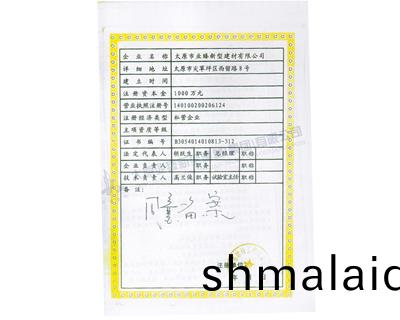 企业名称 太原市业臻新型建材有限公司
详细地址 太原市尖草坪区西留路8号
建立时间
注册资本金 1000万元
营业执照注册号 140100200206124
注册经济类型 私营企业
主项资质等级
证书编号 B3054014010813-312
法定代表人 职务 总经理 职称
企业负责人 职务 职称
技术负责人 高兰俊 职务 试验室主任 职称
备注：
shmalaid